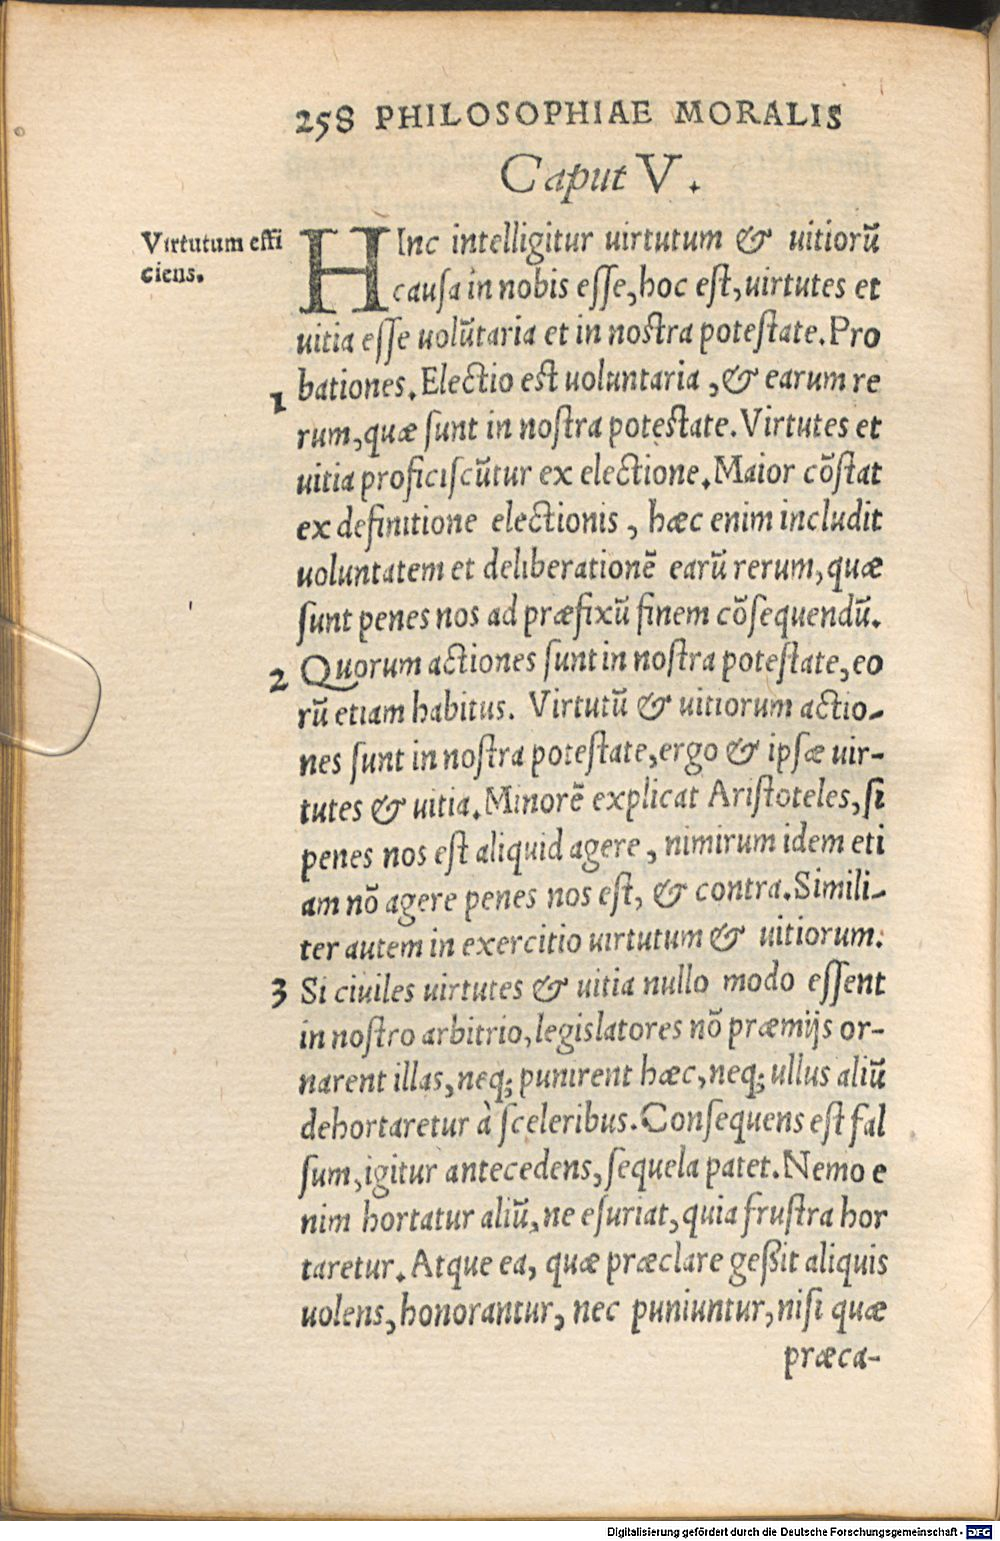 258 PHILOSOPHIAE MORALIS
Caput V.
Virtutum effi
ciens.
HInc intelligitur uirtutum & uitiorū
causa in nobis esse, hoc est, uirtutes et
uitia esse uolūtaria et in nostra potestate. Pro
1 bationes. Electio est uoluntaria, & earum re
rum, quæ sunt in nostra potestate. Virtutes et
uitia proficiscūtur ex electione. Maior cōstat
ex definitione electionis, hæc enim includit
uoluntatem et deliberationē earū rerum, quæ
sunt penes nos ad præfixū finem cōsequendū.
2 Quorum actiones sunt in nostra potestate, eo
rū etiam habitus. Virtutū & uitiorum actio-
nes sunt in nostra potestate, ergo & ipsæ uir-
tutes & uitia. Minorē explicat Aristoteles, si
penes nos est aliquid agere, nimirum idem eti
am nō agere penes nos est, & contra. Simili-
ter autem in exercitio uirtutum & uitiorum.
3 Si ciuiles uirtutes & uitia nullo modo essent
in nostro arbitrio, legislatores nō præmijs or-
narent illas, neq; punirent hæc, neq; ullus aliū
dehortaretur à sceleribus. Consequens est fal
sum, igitur antecedens, sequela patet. Nemo e
nim hortatur aliū, ne esuriat, quia frustra hor
taretur. Atque ea, quæ præclare geßit aliquis
uolens, honorantur, nec puniuntur, nisi quæ
præca-
Digitalisierung gefördert durch die Deutsche Forschungsgemeinschaft - DFG